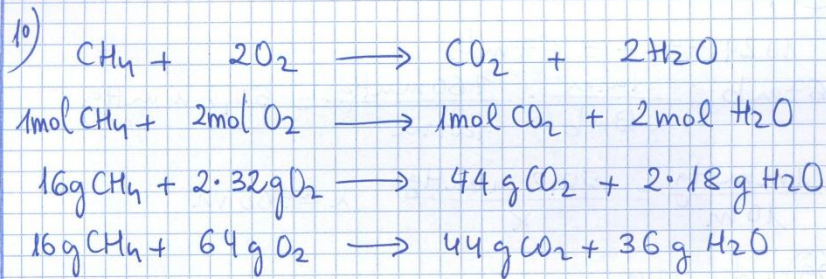 10) CH₄ + 2O₂ ⟶ CO₂ + 2H₂O
1mol CH₄ + 2mol O₂ ⟶ 1mol CO₂ + 2mol H₂O
16g CH₄ + 2·32g O₂ ⟶ 44g CO₂ + 2·18g H₂O
16g CH₄ + 64g O₂ ⟶ 44g CO₂ + 36g H₂O